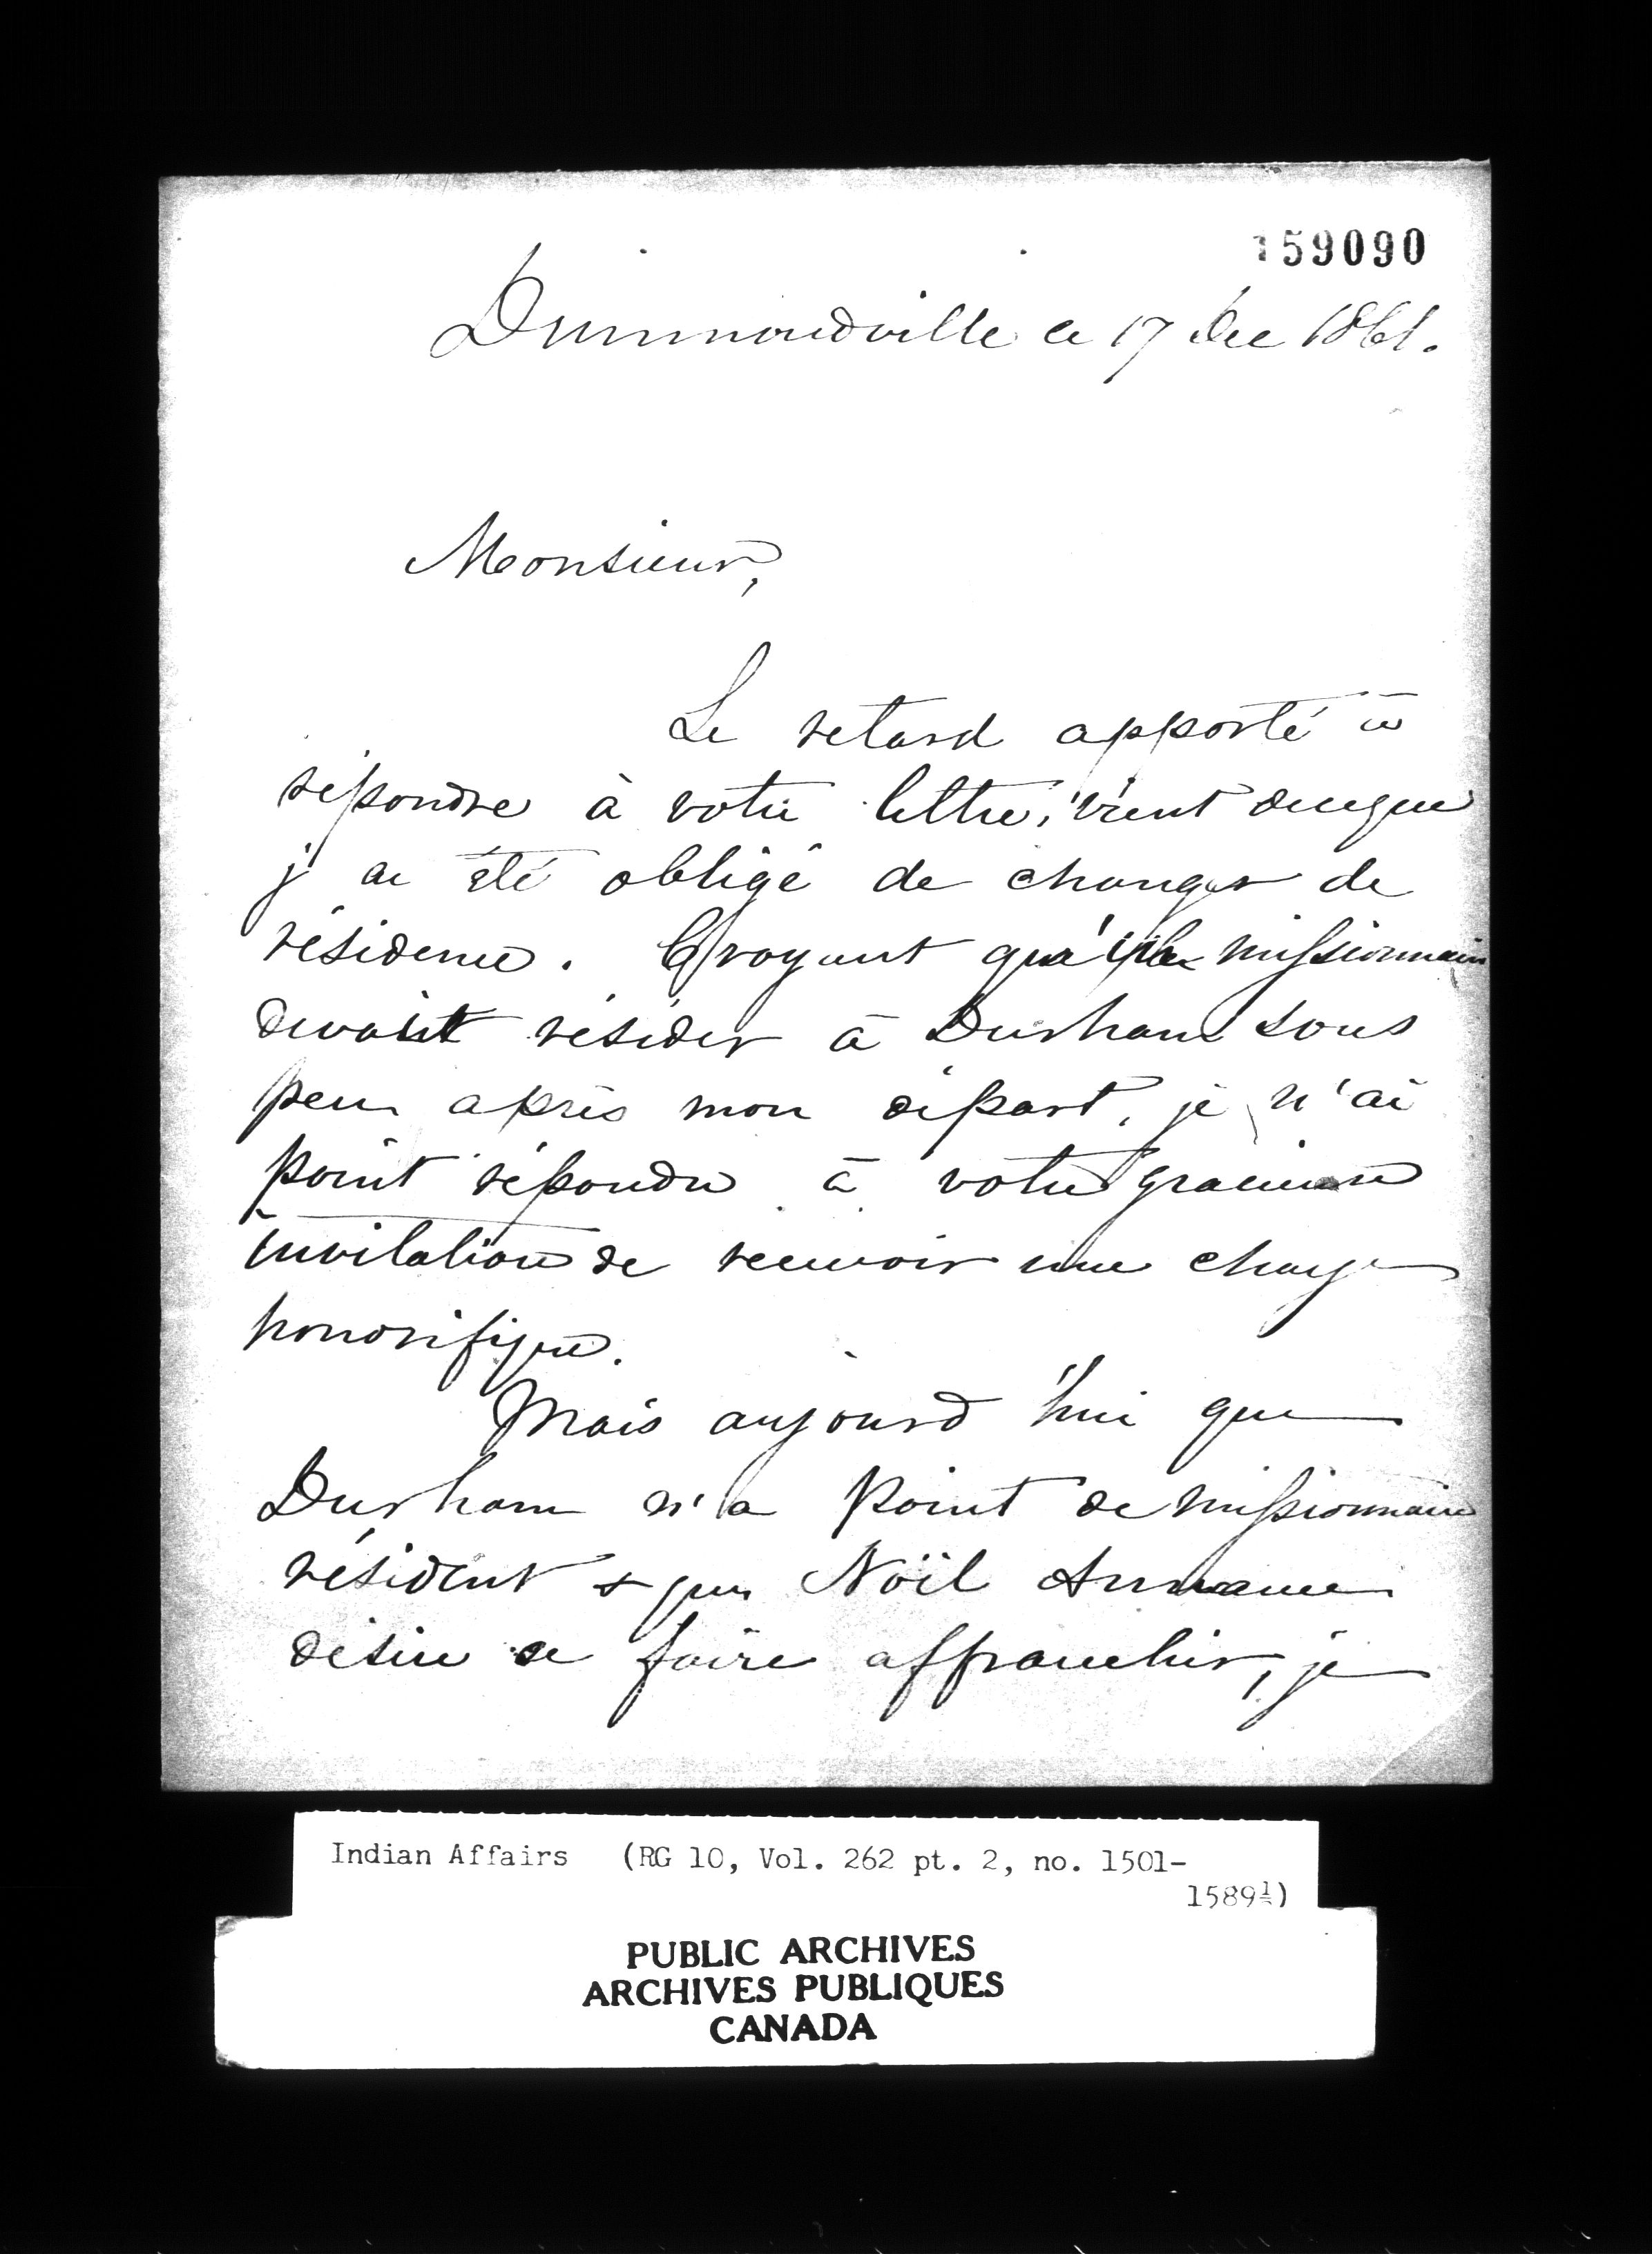 159090
Drummondville ce 17 Dec 1861.
Monsieur,
Le retard apporté à
répondre à votre lettre, vient de ce que
j'ai été obligé de changer de
résidence. Croyant qu'un missionnaire
devait résider à Durham sous
peu après mon départ, je n'ai
point répondu à votre gracieuse
invitation de recevoir une charge
honorifique.
Mais aujourd'hui que
Durham n'a point de missionnaire
résident & que Noël Annance
désire se faire affranchir, je
Indian Affairs (RG 10, Vol. 262 pt. 2, no. 1501-
1589½)
PUBLIC ARCHIVES
ARCHIVES PUBLIQUES
CANADA